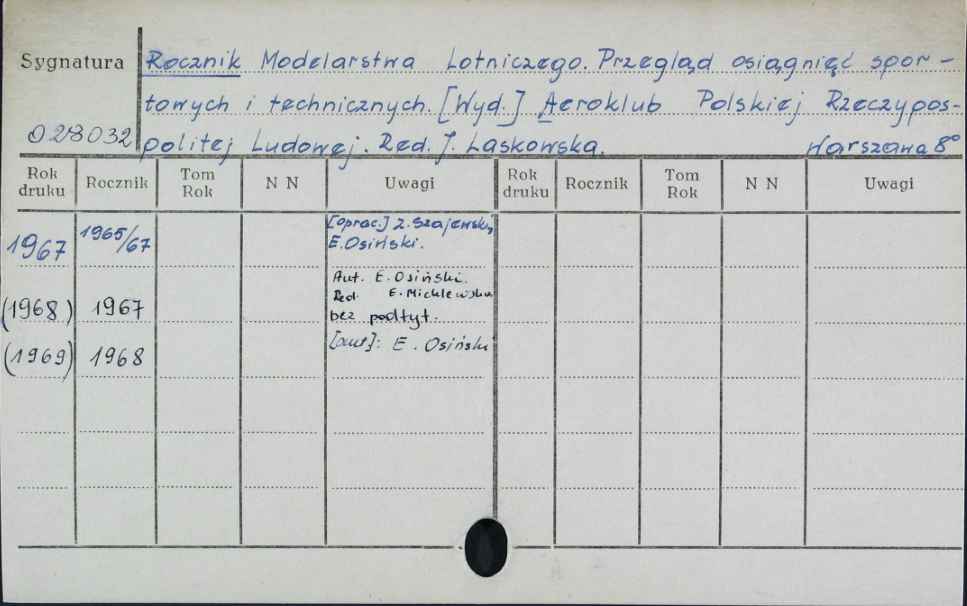 Sygnatura
Rocznik Modelarstwa Lotniczego. Przegląd osiągnięć spor-
towych i technicznych. [Wyd.] Aeroklub Polskiej Rzeczypos-
028032
politej Ludowej. Red. J. Laskowska. Warszawa 8°
Rok druku Rocznik Tom Rok N N Uwagi Rok druku Rocznik Tom Rok N N Uwagi
1967 1965/67 [oprac.] Z. Szajewski,
E. Osiński.
Aut. E. Osiński.
Red. E. Michlewska
(1968) 1967 bez podtyt.
(1969) 1968 [aut]: E. Osiński